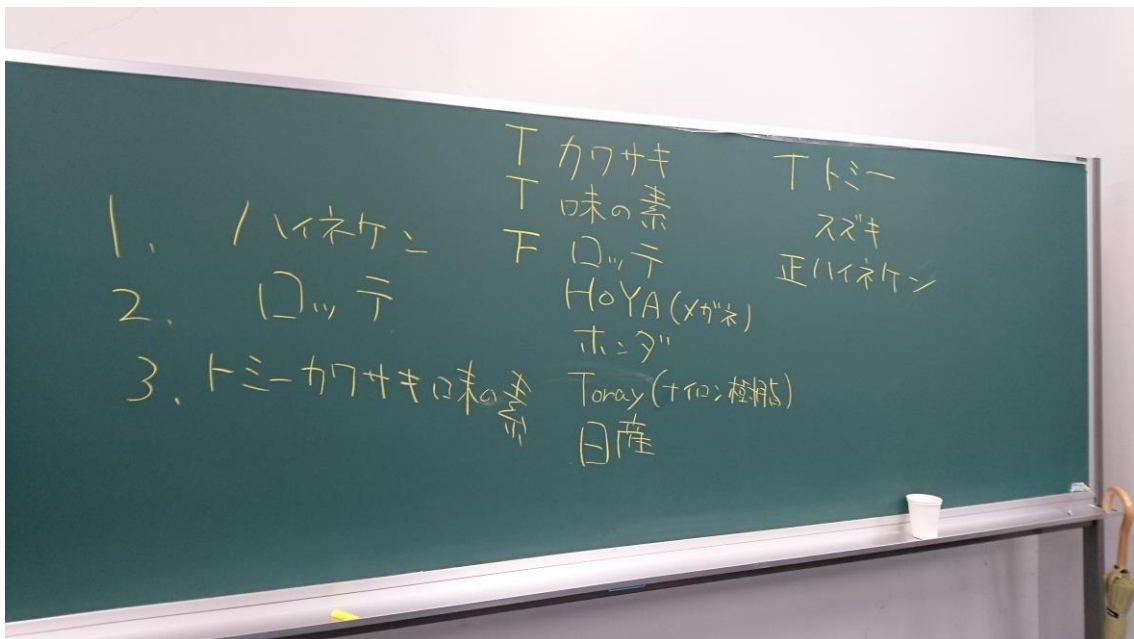 1. ハイネケン
2. ロッテ
3. トミーカワサキ味の素
T カワサキ
T 味の素
F ロッテ
HOYA(メガネ)
ホンダ
Toray(ナイロン樹脂)
日産
T トミー
スズキ
正ハイネケン